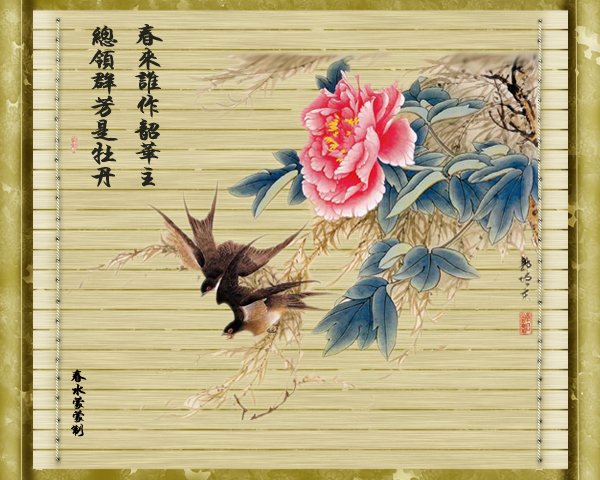 春來誰作韶華主
總領群芳是牡丹
春水蒙蒙制